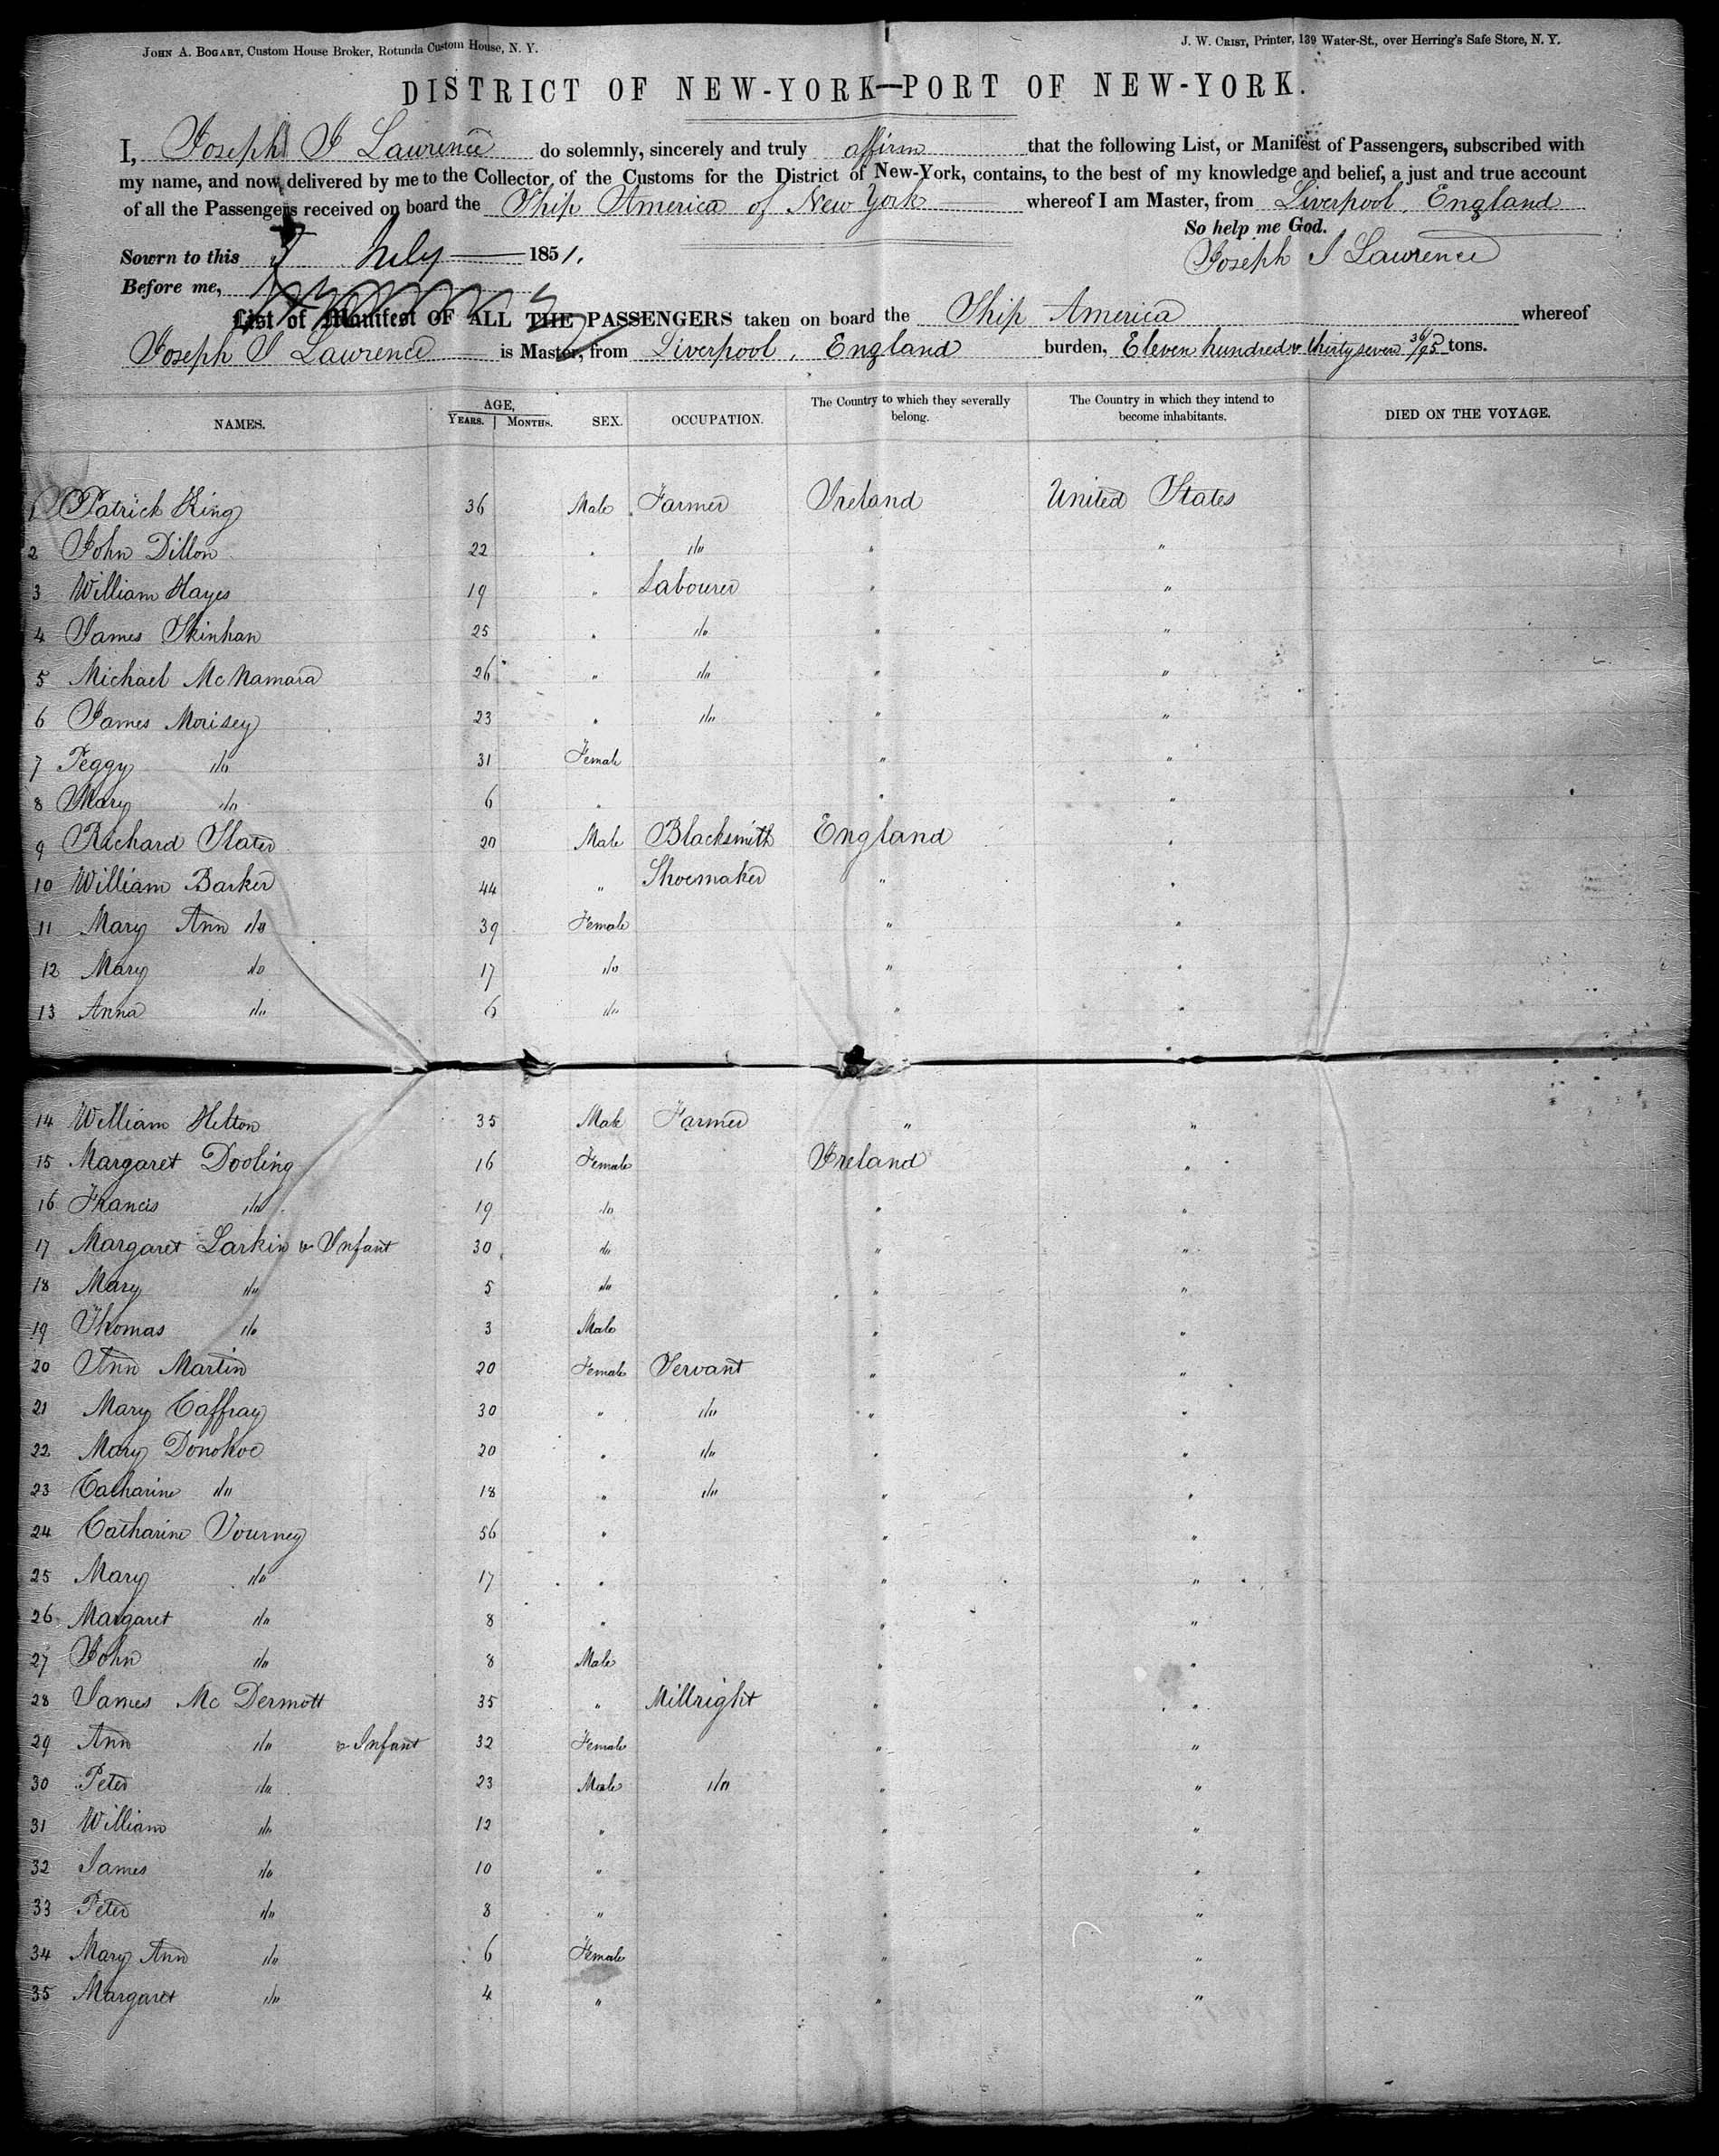 John A. Bogart, Custom House Broker, Rotunda Custom House, N. Y.
J. W. Crist, Printer, 139 Water-St., over Herring's Safe Store, N. Y.
DISTRICT OF NEW-YORK—PORT OF NEW-YORK.
I, Joseph J Lawrence do solemnly, sincerely and truly affirm that the following List, or Manifest of Passengers, subscribed with
my name, and now delivered by me to the Collector of the Customs for the District of New-York, contains, to the best of my knowledge and belief, a just and true account
of all the Passengers received on board the Ship America of New York whereof I am Master, from Liverpool, England
So help me God.
Sowrn to this July 1851.
Joseph J Lawrence
Before me,
List of Manifest OF ALL THE PASSENGERS taken on board the Ship America whereof
Joseph J Lawrence is Master, from Liverpool, England burden, Eleven hundred & thirty seven 36/95 tons.
NAMES. AGE, YEARS. MONTHS. SEX. OCCUPATION. The Country to which they severally belong. The Country in which they intend to become inhabitants. DIED ON THE VOYAGE.
1 Patrick King 36 Male Farmer Ireland United States
2 John Dillon 22 " do " "
3 William Hayes 19 " Labourer " "
4 James Skinhan 25 " do " "
5 Michael McNamara 26 " do " "
6 James Morisey 23 " do " "
7 Peggy do 31 Female " "
8 Mary do 6 " " "
9 Richard Slater 20 Male Blacksmith England "
10 William Barker 44 " Shoemaker " "
11 Mary Ann do 39 Female " "
12 Mary do 17 do " "
13 Anna do 6 do " "
14 William Hilton 35 Male Farmer " "
15 Margaret Dooling 16 Female Ireland "
16 Francis do 19 do " "
17 Margaret Larkin & Infant 30 do " "
18 Mary do 5 do " "
19 Thomas do 3 Male " "
20 Ann Martin 20 Female Servant " "
21 Mary Caffray 30 " do " "
22 Mary Donohoe 20 " do " "
23 Catharine do 18 " do " "
24 Catharine Tourney 56 " " "
25 Mary do 17 " " "
26 Margaret do 8 " " "
27 John do 8 Male " "
28 James Mc Dermott 35 " Millright " "
29 Ann do & Infant 32 Female " "
30 Peter do 23 Male do " "
31 William do 12 " " "
32 James do 10 " " "
33 Peter do 8 " " "
34 Mary Ann do 6 Female " "
35 Margaret do 4 " " "